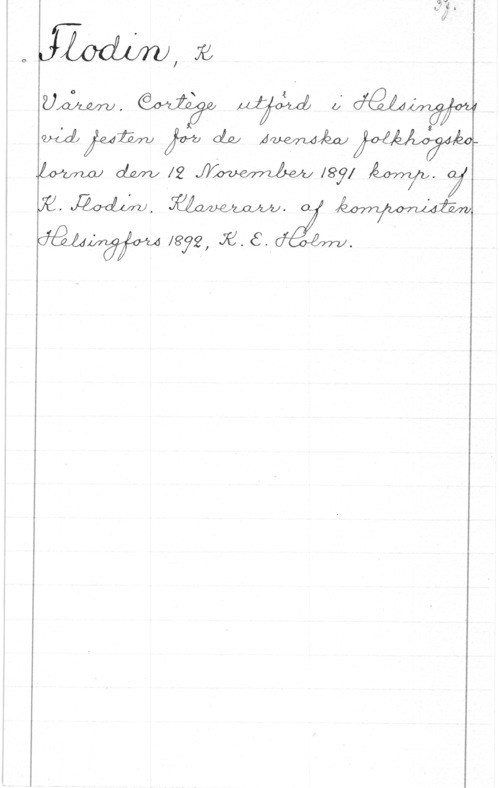 Flodin, K
Våren. Cortège utförd i Helsingfors
vid festen för de svenska folkhögsko-
lorna den 12 November 1891 komp. af
K. Flodin. Klaverarr. af komponisten.
Helsingfors 1892, K. E. Holm.